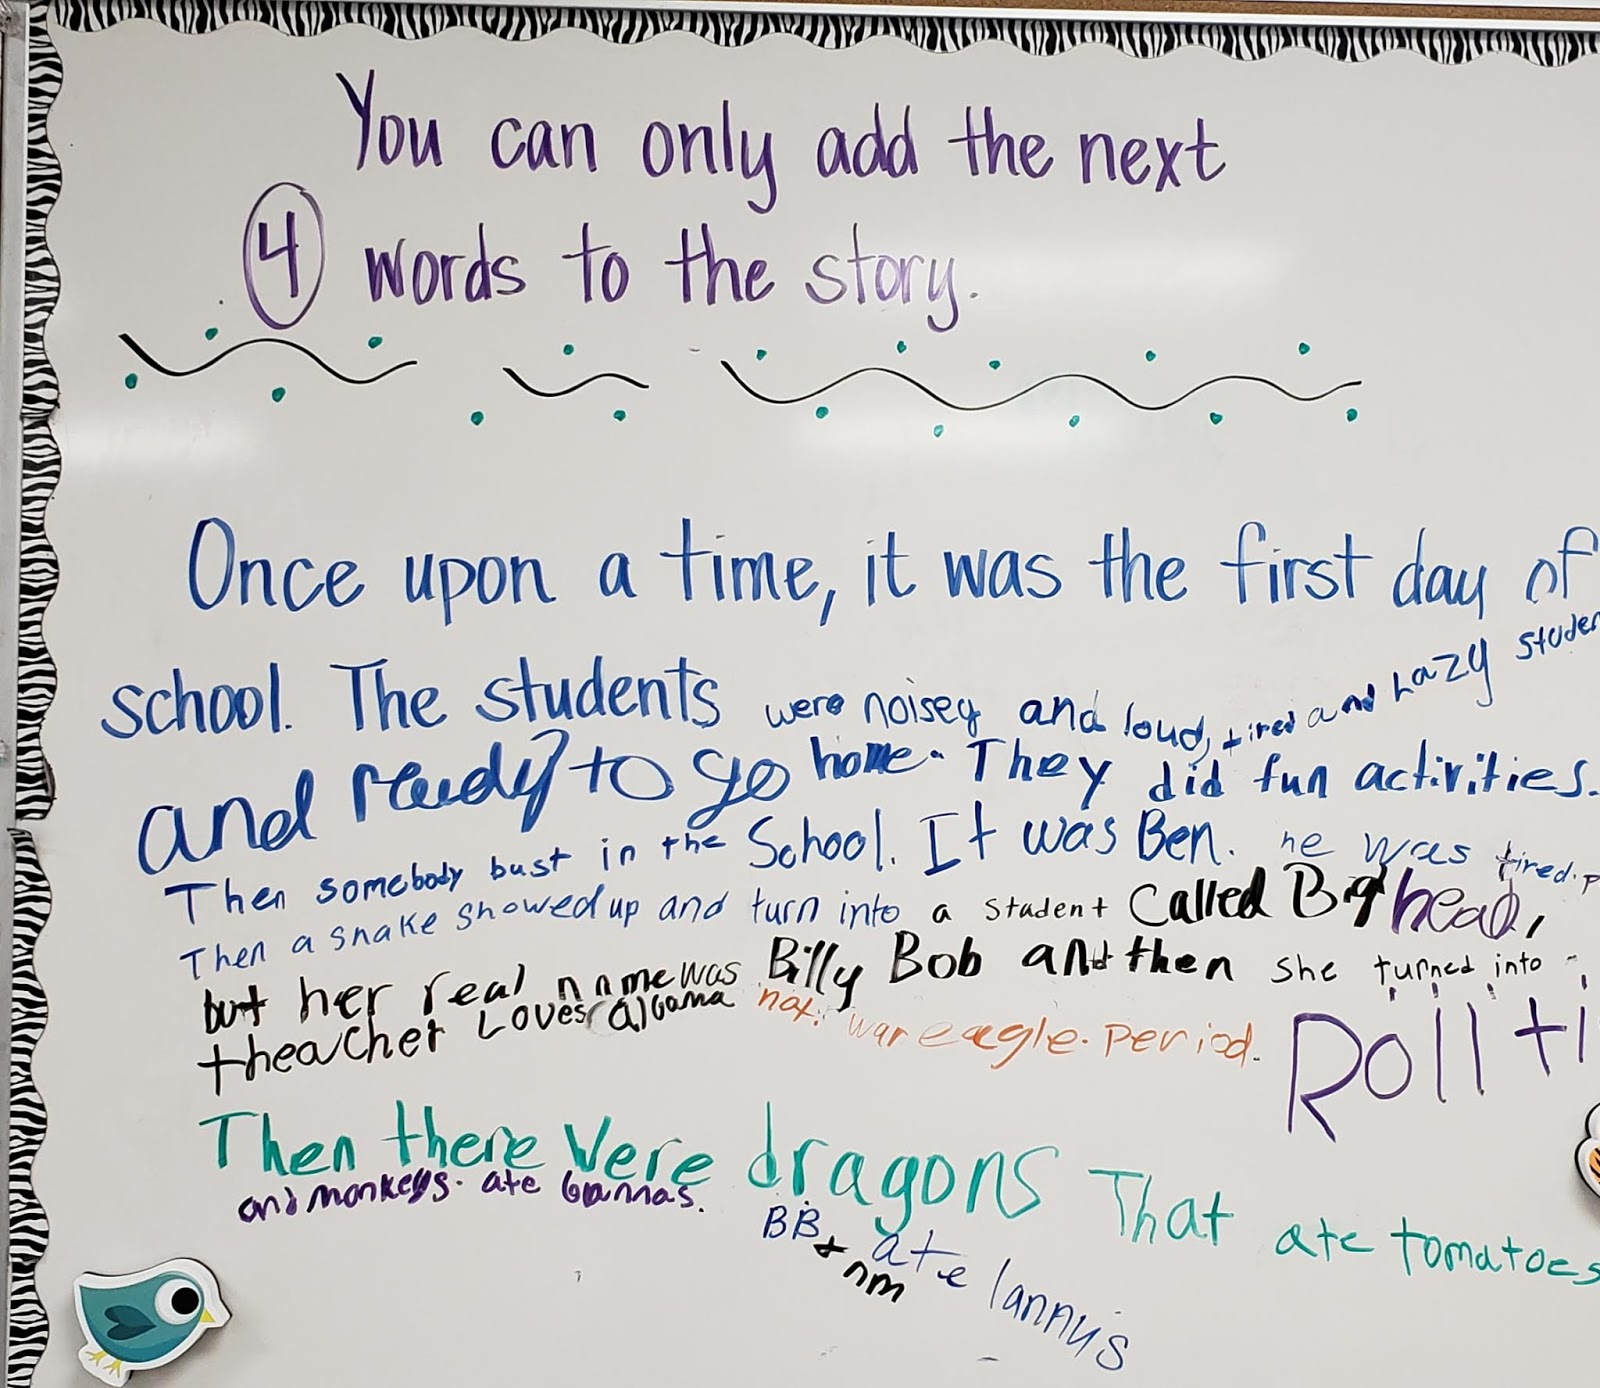 You can only add the next
4 words to the story.
Once upon a time, it was the first day of
school. The students were noisey and loud, tired and Lazy studen
and ready to go home. They did fun activities.
Then somebody bust in the School. It was Ben. he was tired. p
Then a snake showed up and turn into a student Called Big head,
but her real name was Billy Bob and then she turned into
theacher Loves Albama not. war eagle. Period. Roll ti
Then there were dragons That ate tomatoes
and monkeys. ate bannas.
BB + nm ate lannu's